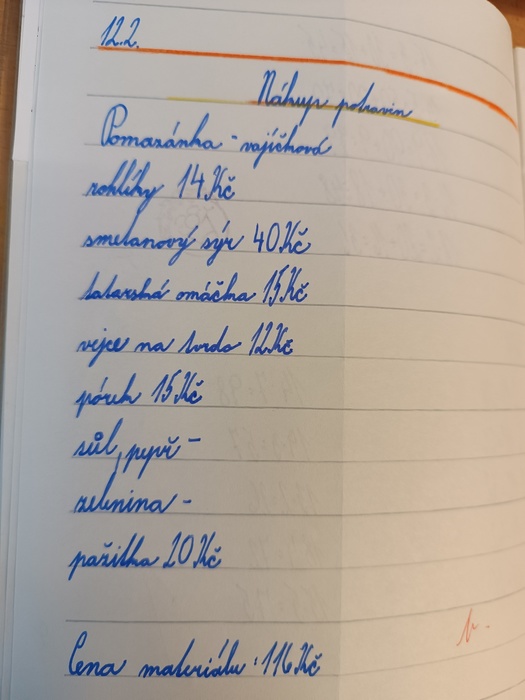 12.2.
Nákup potravin
Pomazánka - vajíčková
rohlíky 14 Kč
smetanový sýr 40 Kč
tatarská omáčka 15 Kč
vejce na tvrdo 12 Kč
pórek 15 Kč
sůl, pepř -
zelenina -
pažitka 20 Kč
Cena materiálu: 116 Kč